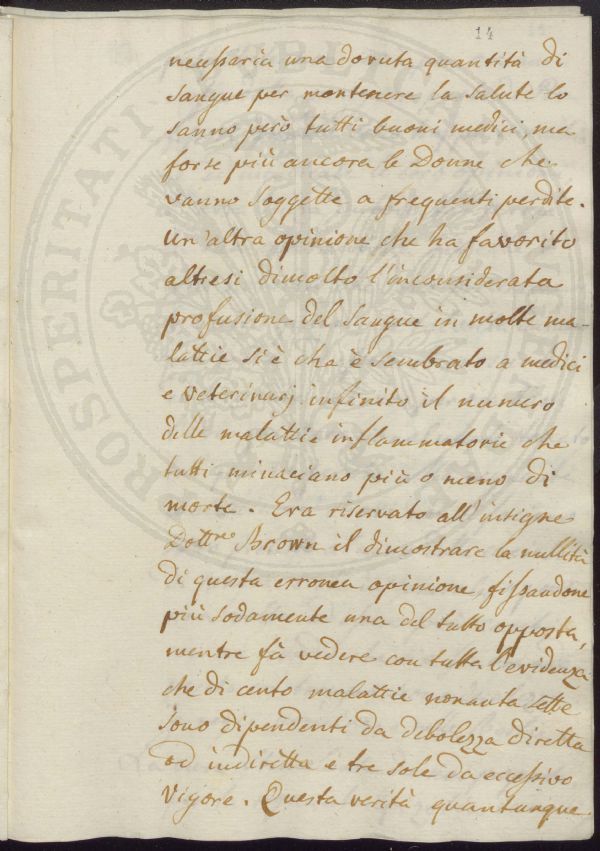 14
necessaria una dovuta quantità di
sangue per mantenere la salute lo
sanno però tutti buoni medici, ma
forse più ancora le Donne che
vanno soggette a frequenti perdite.
Un'altra opinione che ha favorito
altresi dimolto l'inconsiderata
profusione del sangue in molte ma-
lattie si è cha è sembrato a medici
e veterinarj infinito il numero
delle malattie inflammatorie che
tutti minaciano più o meno di
morte. Era riservato all'insigne
Dottre Brown il dimostrare la nullità
di questa erronea opinione, fissandone
più sodamente una del tutto opposta,
mentre fà vedere con tutta l'evidenza
che di cento malattie nonanta sette
sono dipendenti da debolezza diretta
od indiretta e tre sole da eccessivo
vigore. Questa verità quantunque
PROSPERITATI PVBLICAE